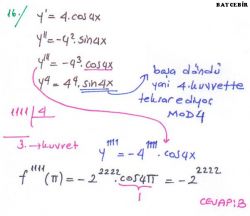 BAYCEBİR
16. y' = 4.cos4x
y'' = -4². sin4x
y''' = -4³. cos4x
y⁴ = 4⁴. sin4x
başa döndü
yani 4.kuvvette
tekrar ediyor
MOD4
1111 | 4
3. → kuvvet
y¹¹¹¹ = -4¹¹¹¹. cos4x
f¹¹¹¹(π) = -2²²²². cos4π = -2²²²²
1
CEVAP:B